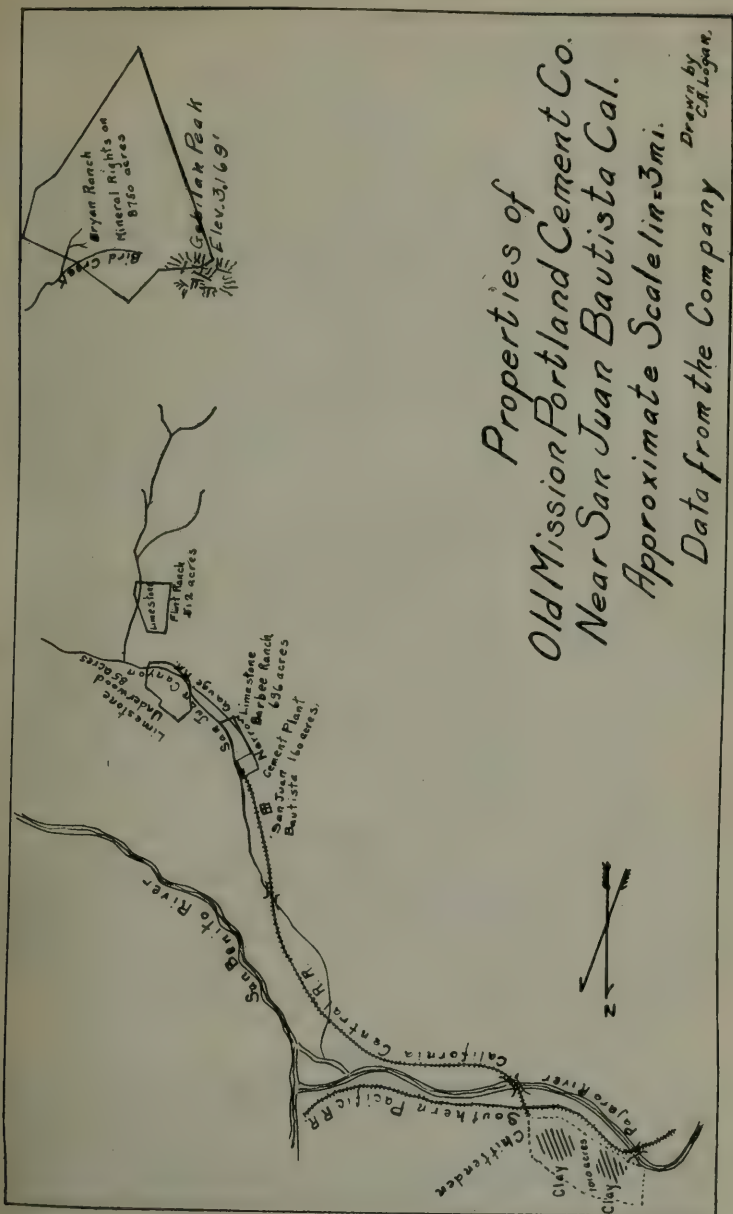 Properties of
Old Mission Portland Cement Co.
Near San Juan Bautista Cal.
Approximate Scale 1in=3mi.
Data from the Company
Drawn by
C.A. Logan.
Bryan Ranch
Mineral Rights on
8750 acres
Bird Creek
Gabilan Peak
Elev. 3,169'
Limestone
Flint Ranch
512 acres
Limestone
Underwood
85 acres
San Juan Canyon
Narrow Gauge
Limestone
Barbee Ranch
696 acres
Cement Plant
San Juan
Bautista 160 acres.
San Benito River
California Central R.R.
Southern Pacific R.R.
Pajaro River
Chittenden
Clay
1010 acres
Clay
N